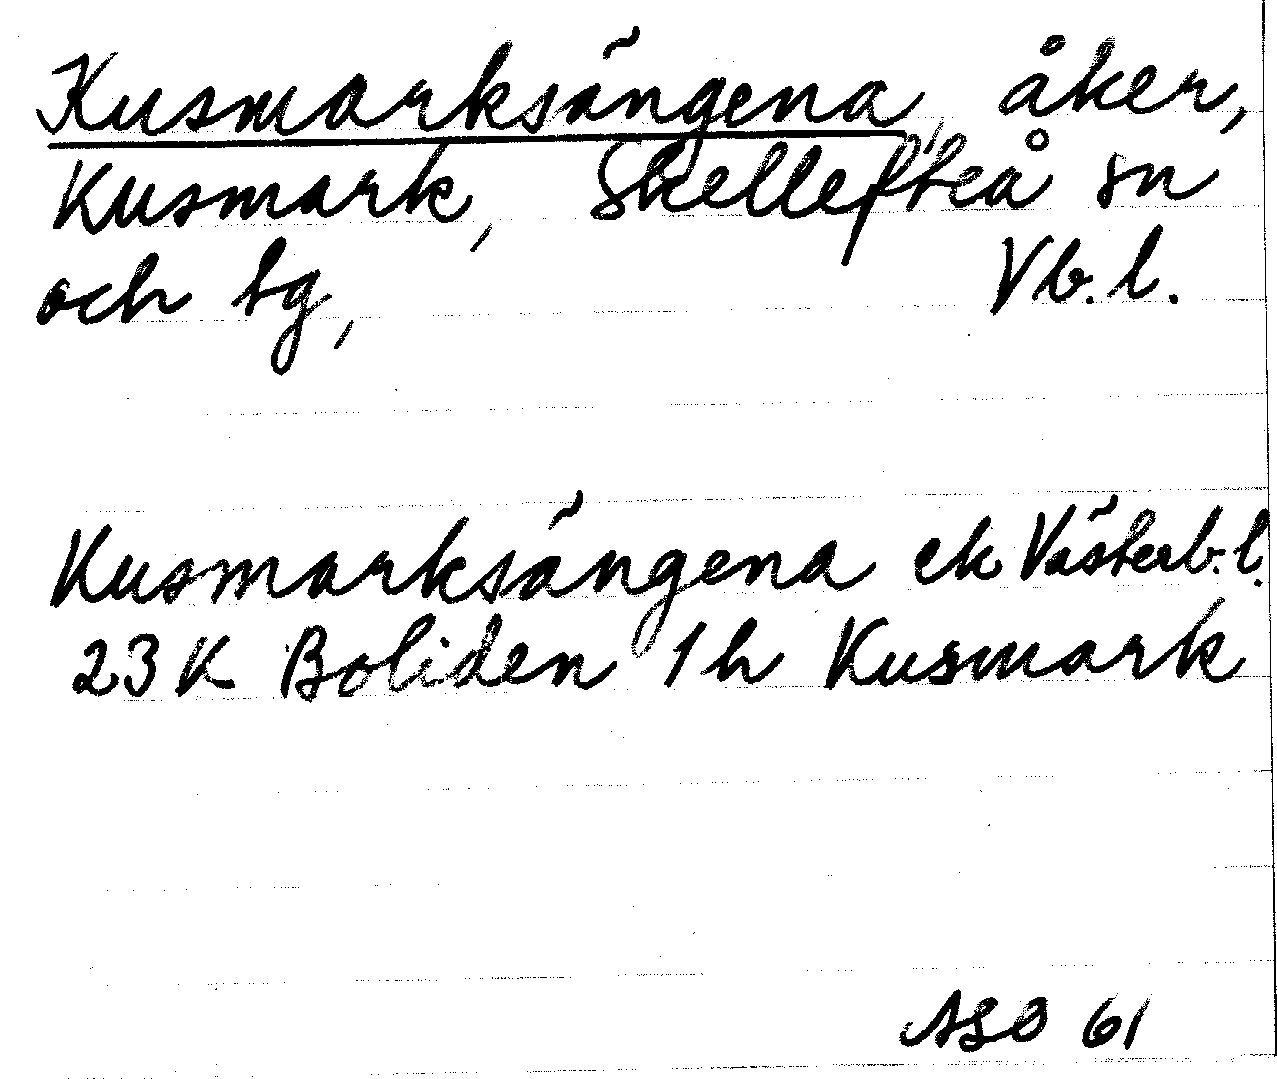 Kusmarksängena, åker,
Kusmark, Skellefteå sn
och tg, Vb. l.
Kusmarksängena ek Västerb. l.
23 K Boliden 1 h Kusmark
ASO 61